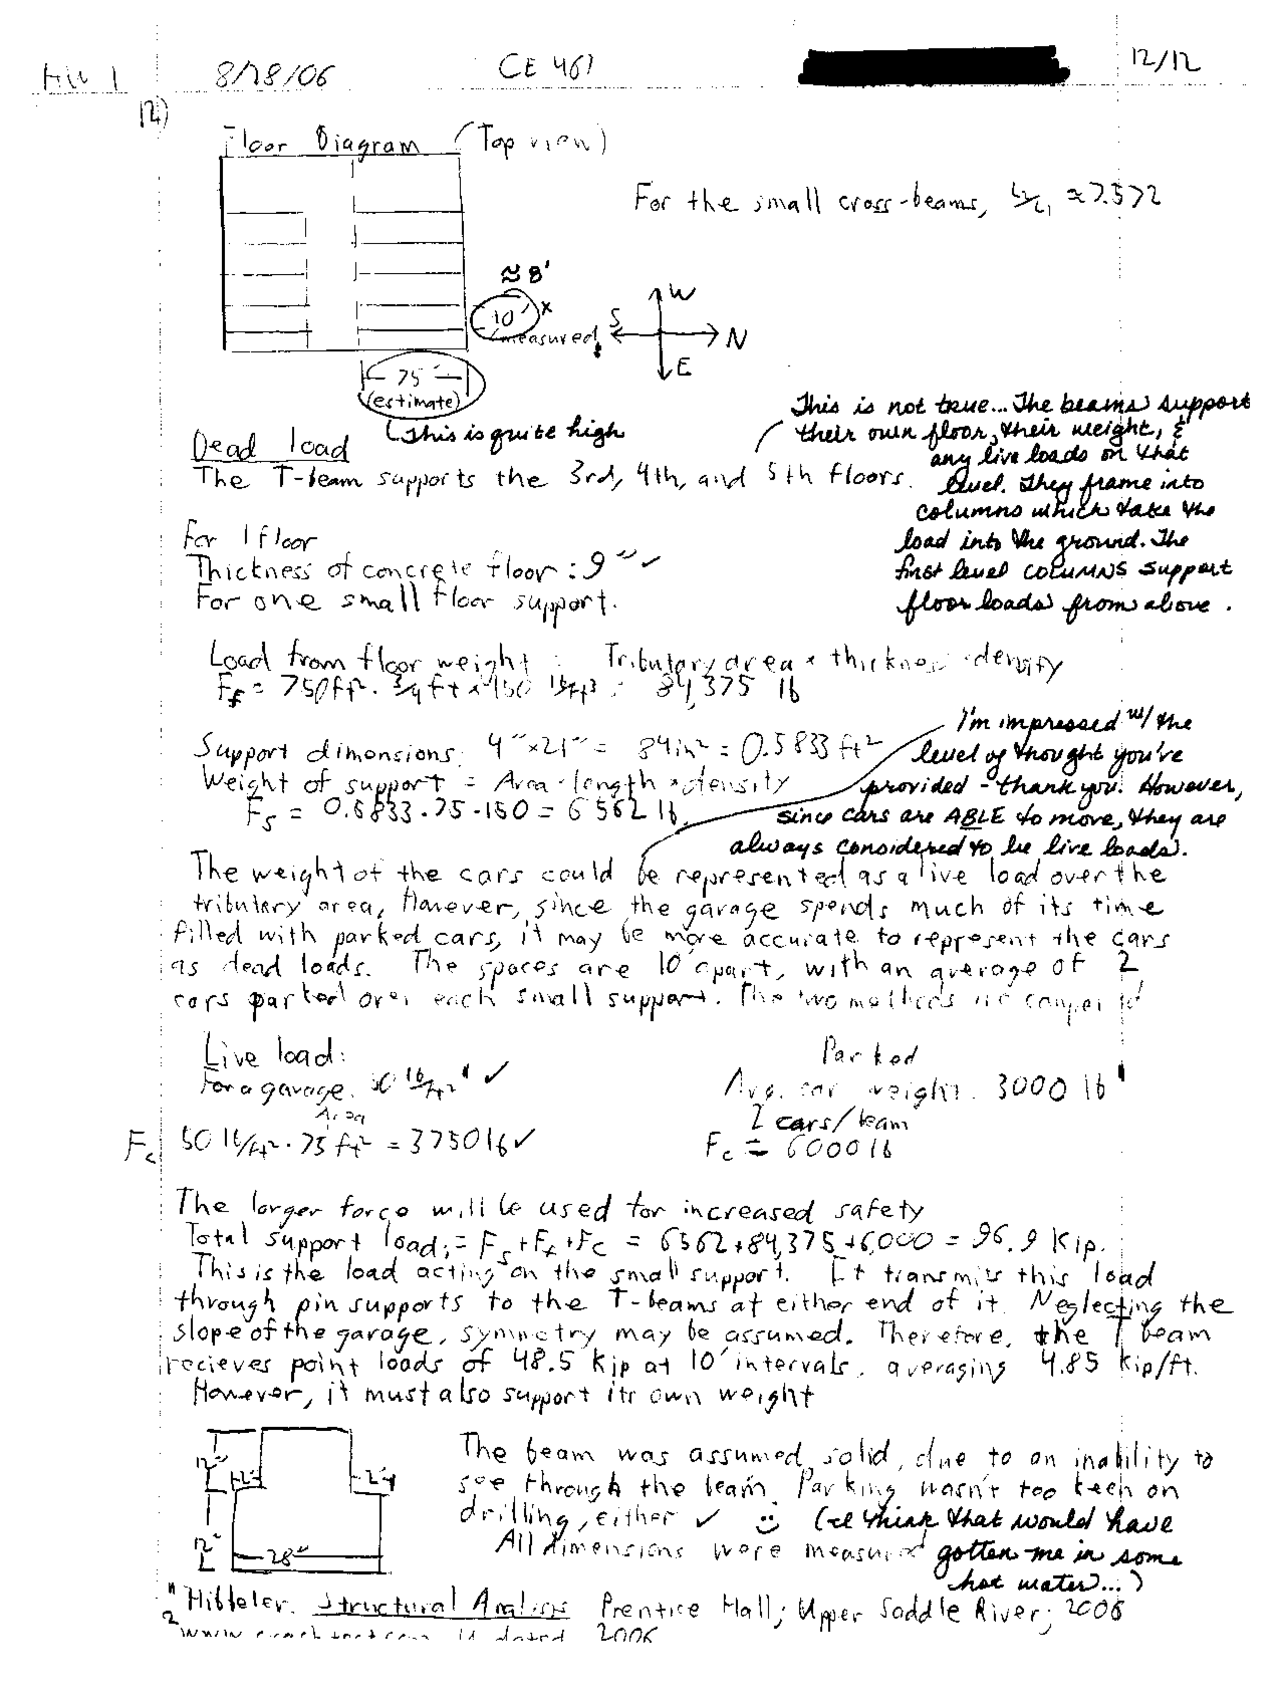 HW 1 8/28/06 CE 461 12/12
12)
Floor Diagram (Top view)
For the small cross-beams, L2/L1 ≈ 7.5 > 2
≈ 8'
10' x
measured
W
S N
E
75'
(estimate)
This is quite high
This is not true... The beams support
their own floor, their weight, &
any live loads on that
level. They frame into
columns which take the
load into the ground. The
first level COLUMNS support
floor loads from above.
Dead load
The T-beam supports the 3rd, 4th, and 5th floors.
For 1 floor
Thickness of concrete floor: 9" ✓
For one small floor support.
Load from floor weight: Tributary area * thickness * density
Ff = 750 ft² · 3/4 ft * 150 lb/ft³ = 84,375 lb
I'm impressed w/ the
level of thought you've
provided - thank you! However,
since cars are ABLE to move, they are
always considered to be live loads.
Support dimensions: 4" × 21" = 84 in² = 0.5833 ft²
Weight of support = Area · length * density
Fs = 0.5833 · 75 · 150 = 6562 lb.
The weight of the cars could be represented as a live load over the
tributary area, However, since the garage spends much of its time
filled with parked cars, it may be more accurate to represent the cars
as dead loads. The spaces are 10' apart, with an average of 2
cars parked over each small support. The two methods are compared
Live load:
For a garage, 50 lb/ft² " ✓
Area
Fc 50 lb/ft² · 75 ft² = 3750 lb ✓
Parked
Avg. car weight. 3000 lb
2 cars/beam
Fc = 6000 lb
The larger force will be used for increased safety
Total support load: = Fs + Ff + Fc = 6562 + 84,375 + 6,000 = 96.9 Kip.
This is the load acting on the small support. It transmits this load
through pin supports to the T-beams at either end of it. Neglecting the
slope of the garage, symmetry may be assumed. Therefore, the T beam
recieves point loads of 48.5 Kip at 10' intervals, averaging 4.85 Kip/ft.
However, it must also support its own weight
12"
12"
28"
The beam was assumed solid, due to an inability to
see through the beam. Parking wasn't too keen on
drilling, either ✓ (I think that would have
gotten me in some
hot water...)
All dimensions were measured
" Hibbeler. Structural Analysis Prentice Hall; Upper Saddle River; 2006
2 2006